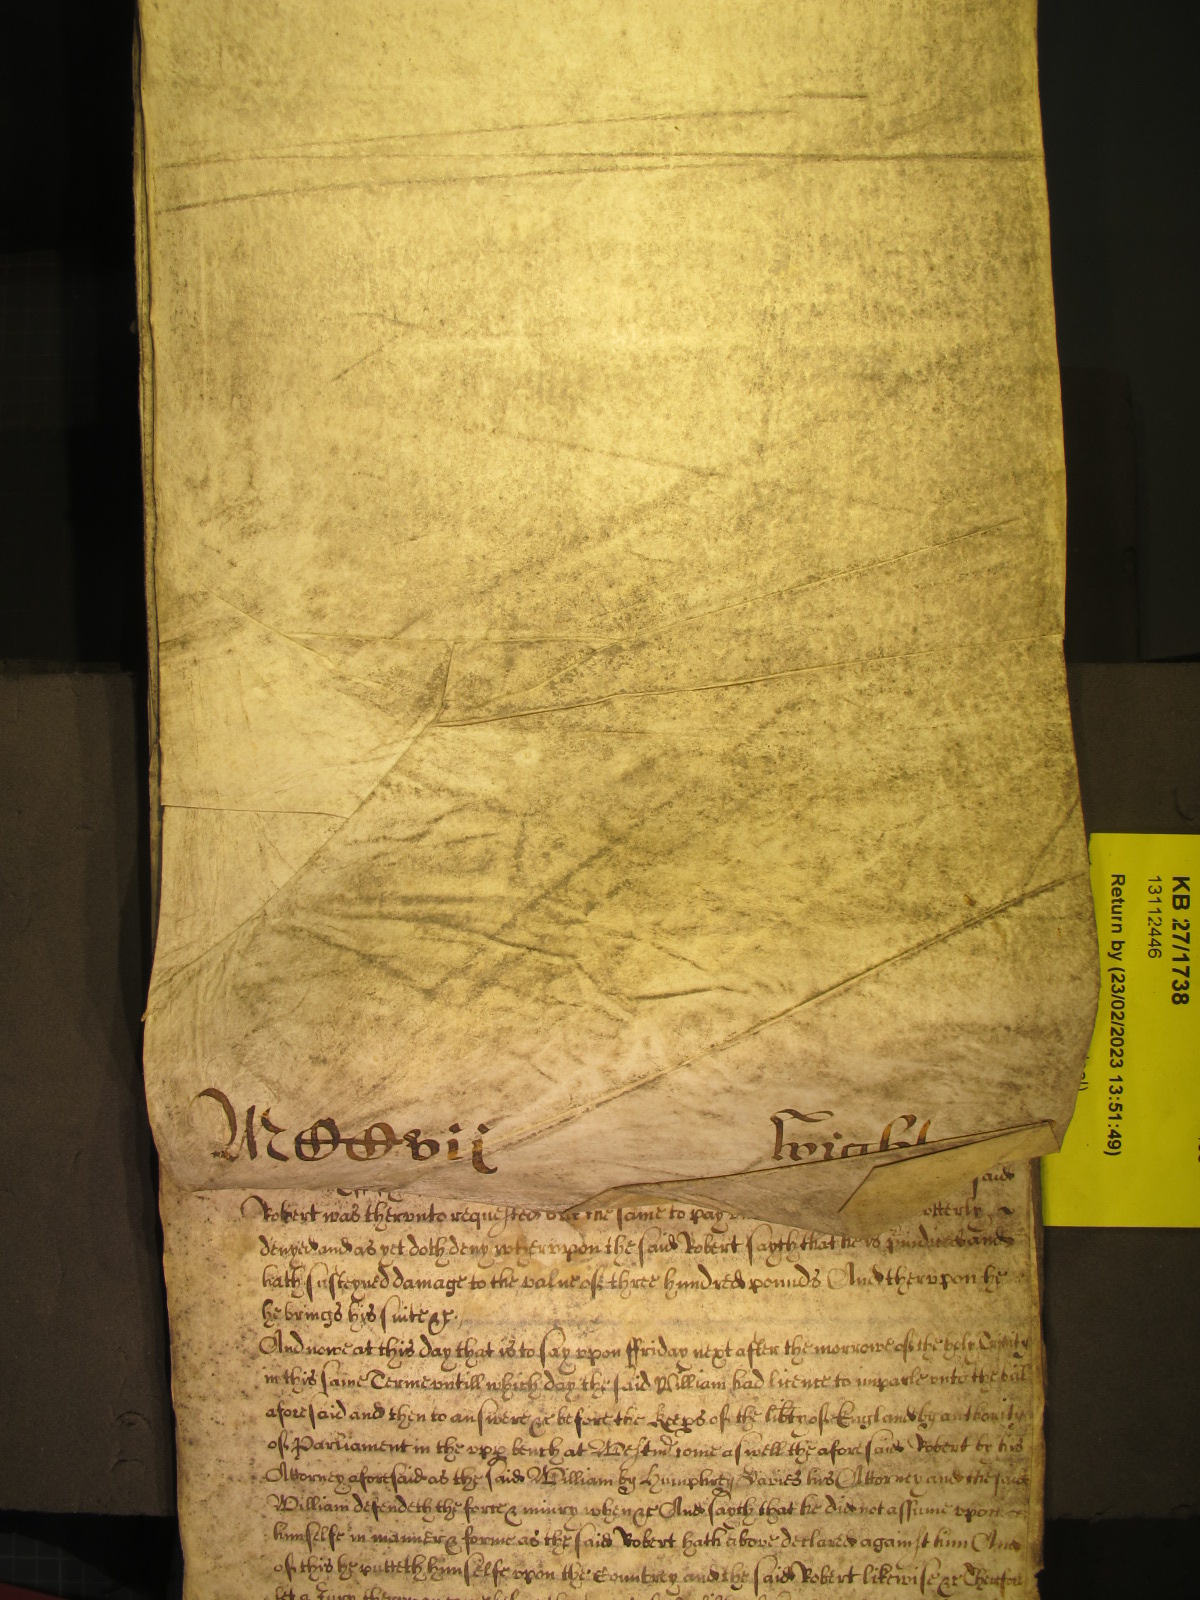 MCCvii Wight
said
Robert was thervnto requested but the same to pay otterly
denyed and as yet doth deny whervpon the said Robert sayth that he is and
hath susteyned damage to the value of three hundred pounds And thervpon he
he brings his suite &c.
And nowe at this day that is to say vpon ffriday next after the morrowe of the holy Trinity
in this same Terme vntill which day the said William had licence to imparle vnto the bill
aforesaid and then to answere &c before the Keeps of the libty of England by authority
of Parliament in the vpp bench at Westmr come aswell the aforesaid Robert by his
Attorney aforesaid as the said William by Humphrey Davies his Attorney and the said
William defendeth the force & iniury when &c And sayth that he did not assume vpon
himselfe in manner & forme as the said Robert hath above declared against him And
of this he putteth himselfe vpon the Countrey and the said Robert likewise &c Therefore
let a Jury thervpon
KB 27/1738
13112446
Return by (23/02/2023 13:51:49)